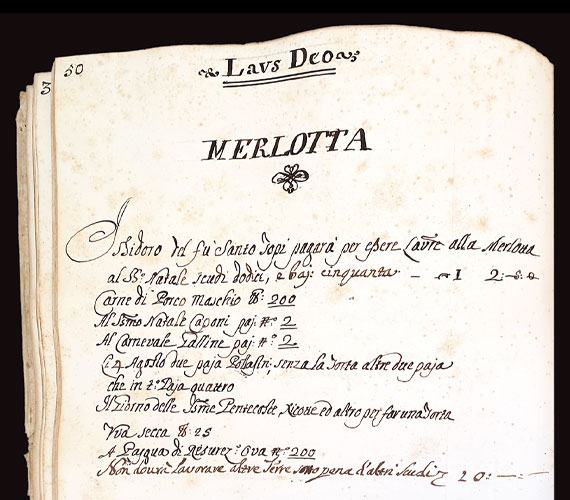 50
3
Laus Deo
MERLOTTA
Isidoro del fu Santo Topi pagarà per essere Lavre alla Merlotta
al SS.º Natale scudi dodici, e baj: cinquanta — 12:
Carne di Porco Maschio lb: 200
Al SSmo Natale Caponi paj: nº 2
Al Carnevale Galline paj: nº 2
Li 4 Agosto due paja Pollastri, senza la Torta altre due paja
che in tº Paja quattro
Il Giorno delle SSme Pentecoste, Ricotte ed altro per far una Torta
Uva secca lb: 25
A Pasqua di Resurez: Ova nº 200
Non dovrà lavorare altre Terre sotto pena d'altri scudi 20: